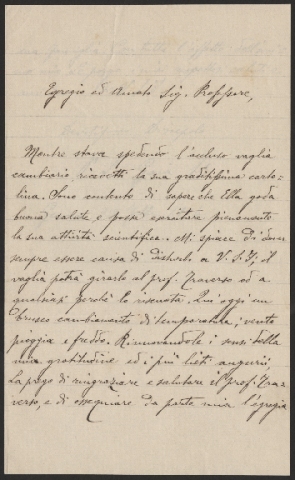 Egregio ed Amato Sig. Professore,
Mentre stava spedendo l'accluso vaglia
cambiario, ricevetti la sua graditissima carto-
lina. Sono contento di sapere che Ella goda
buona salute e possa esercitare pienamente
la sua attività scientifica. Mi spiace di dover
sempre essere causa di disturbo a V. S. Ill. il
vaglia potrà girarlo al prof. Traverso od a
qualsiasi perchè lo riscuota. Qui oggi un
brusco cambiamento di temperatura, vento
pioggia e freddo. Rinnovandole i sensi della
mia gratitudine ed i più lieti augurii,
La prego di ringraziare e salutare il prof. Tra-
verso, e di ossequiare da parte mia l'egregia